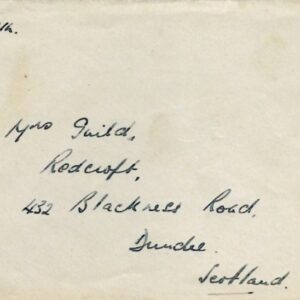 Mrs Guild,
Redcroft,
432 Blackness Road,
Dundee.
Scotland.